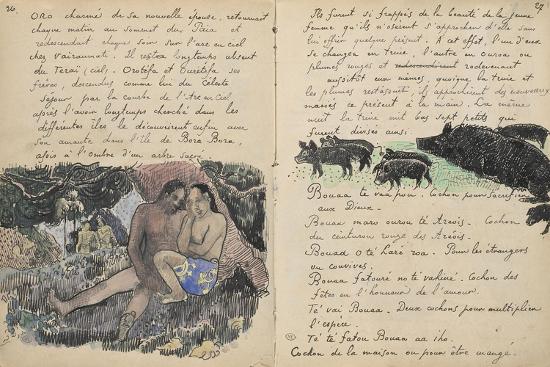 26.
ORO charmé de sa nouvelle épouse, retournait
chaque matin au sommet du Païa et
redescendait chaque soir sur l'arc en ciel
chez Vaïraumati. Il resta longtemps absent
du Teraï (ciel). Orotefa et Ouretefa ses
frères, descendus comme lui du Céleste
Séjour, par la courbe de l'Arc en Ciel
après l'avoir longtemps cherché dans les
différentes îles le découvrirent enfin avec
son amante dans l'île de Bora Bora,
assis à l'ombre d'un arbre sacré
27
Ils furent si frappés de la beauté de la jeune
femme qu'ils n'osèrent s'approcher d'elle sans
lui offrir quelque présent. A cet effet, l'un d'eux
se changea en truie, l'autre en ourou ou
plumes rouges et redevenant
aussitôt eux mêmes, quoique la truie et
les plumes restassent, ils approchèrent des nouveaux
mariés ce présent à la main. La même
nuit la truie mit bas sept petits qui
furent divisés ainsi
Bouaa te vaa pour. Cochon pour sacrifier
aux Dieux.
Bouaa maro ourou té Areoïs. Cochon
du ceinturon rouge des Aréoïs.
Bouaa o té Laré roa. Pour les étrangers
ou convives.
Bouaa fatouré no té vahiné. Cochon des
fêtes en l'honneur de l'amour.
Té vaï Bouaa. Deux cochons pour multiplier
l'espèce.
Té té fatou Bouaa aa iho.
Cochon de la maison ou pour être mangé.